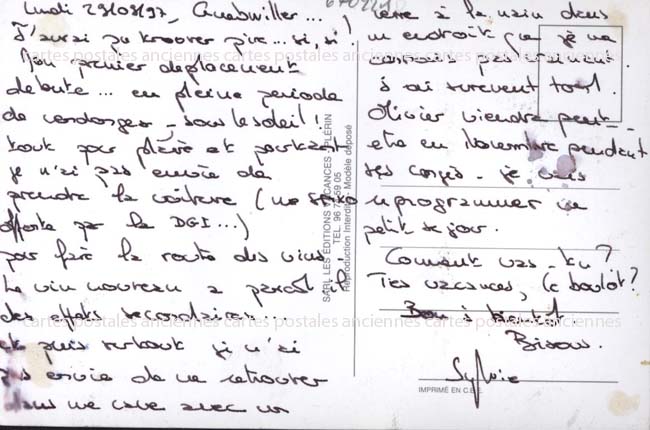 Lundi 29/09/97_ Guebwiller...
J'aurai pu trouver pire... si, si!
Mon premier déplacement
débute... en pleine période
de vendanges - sous le soleil!
tout pour plaire et pourtant
je n'ai pas envie de
prendre la voiture (
offerte par la DGI...)
pour faire la route des vins.
Le vin nouveau a paraît-il
des effets secondaires...
et puis surtout je n'ai
pas envie de me retrouver
dans une cave avec un
verre à la main dans
un endroit que je ne
connais pas
surtout tout.
Olivier viendra peut-
être en Novembre pendant
ses congés - je vais
reprogrammer un
petit séjour.
Comment vas-tu?
Tes vacances, le boulot?
Bon à bientôt
Bisous.
Sylvie
SARL LES ÉDITIONS VACANCES - PLÉRIN
TEL. 96 73 59 05
Reproduction Interdite - Modèle déposé
IMPRIMÉ EN C.E.E.
cartes postales anciennes cartes postales anciennes cartes postales anciennes
cartes postales anciennes cartes postales anciennes cartes postales anciennes